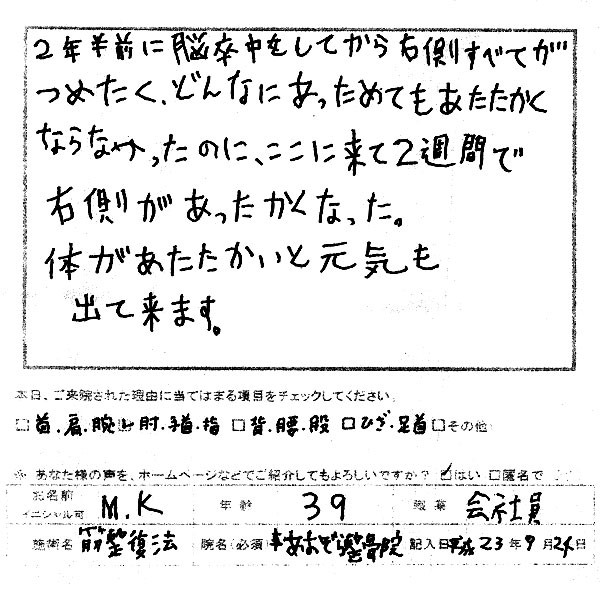 2年半前に脳卒中をしてから右側すべてが
つめたく、どんなにあったためてもあたたかく
ならなかったのに、ここに来て2週間で
右側があったかくなった。
体があたたかいと元気も
出て来ます。
本日、ご来院された理由に当てはまる項目をチェックしてください。
□首.肩.腕 □肘.手首.指 □背.腰.股 □ひざ.足首 □その他
※ あなた様の声を、ホームページなどでご紹介してもよろしいですか? ☑はい □匿名で
お名前 イニシャル可 M.K 年齢 39 職業 会社員
施術名 筋整復法 院名(必須) あおぞら整骨院 記入日 平成23年9月24日